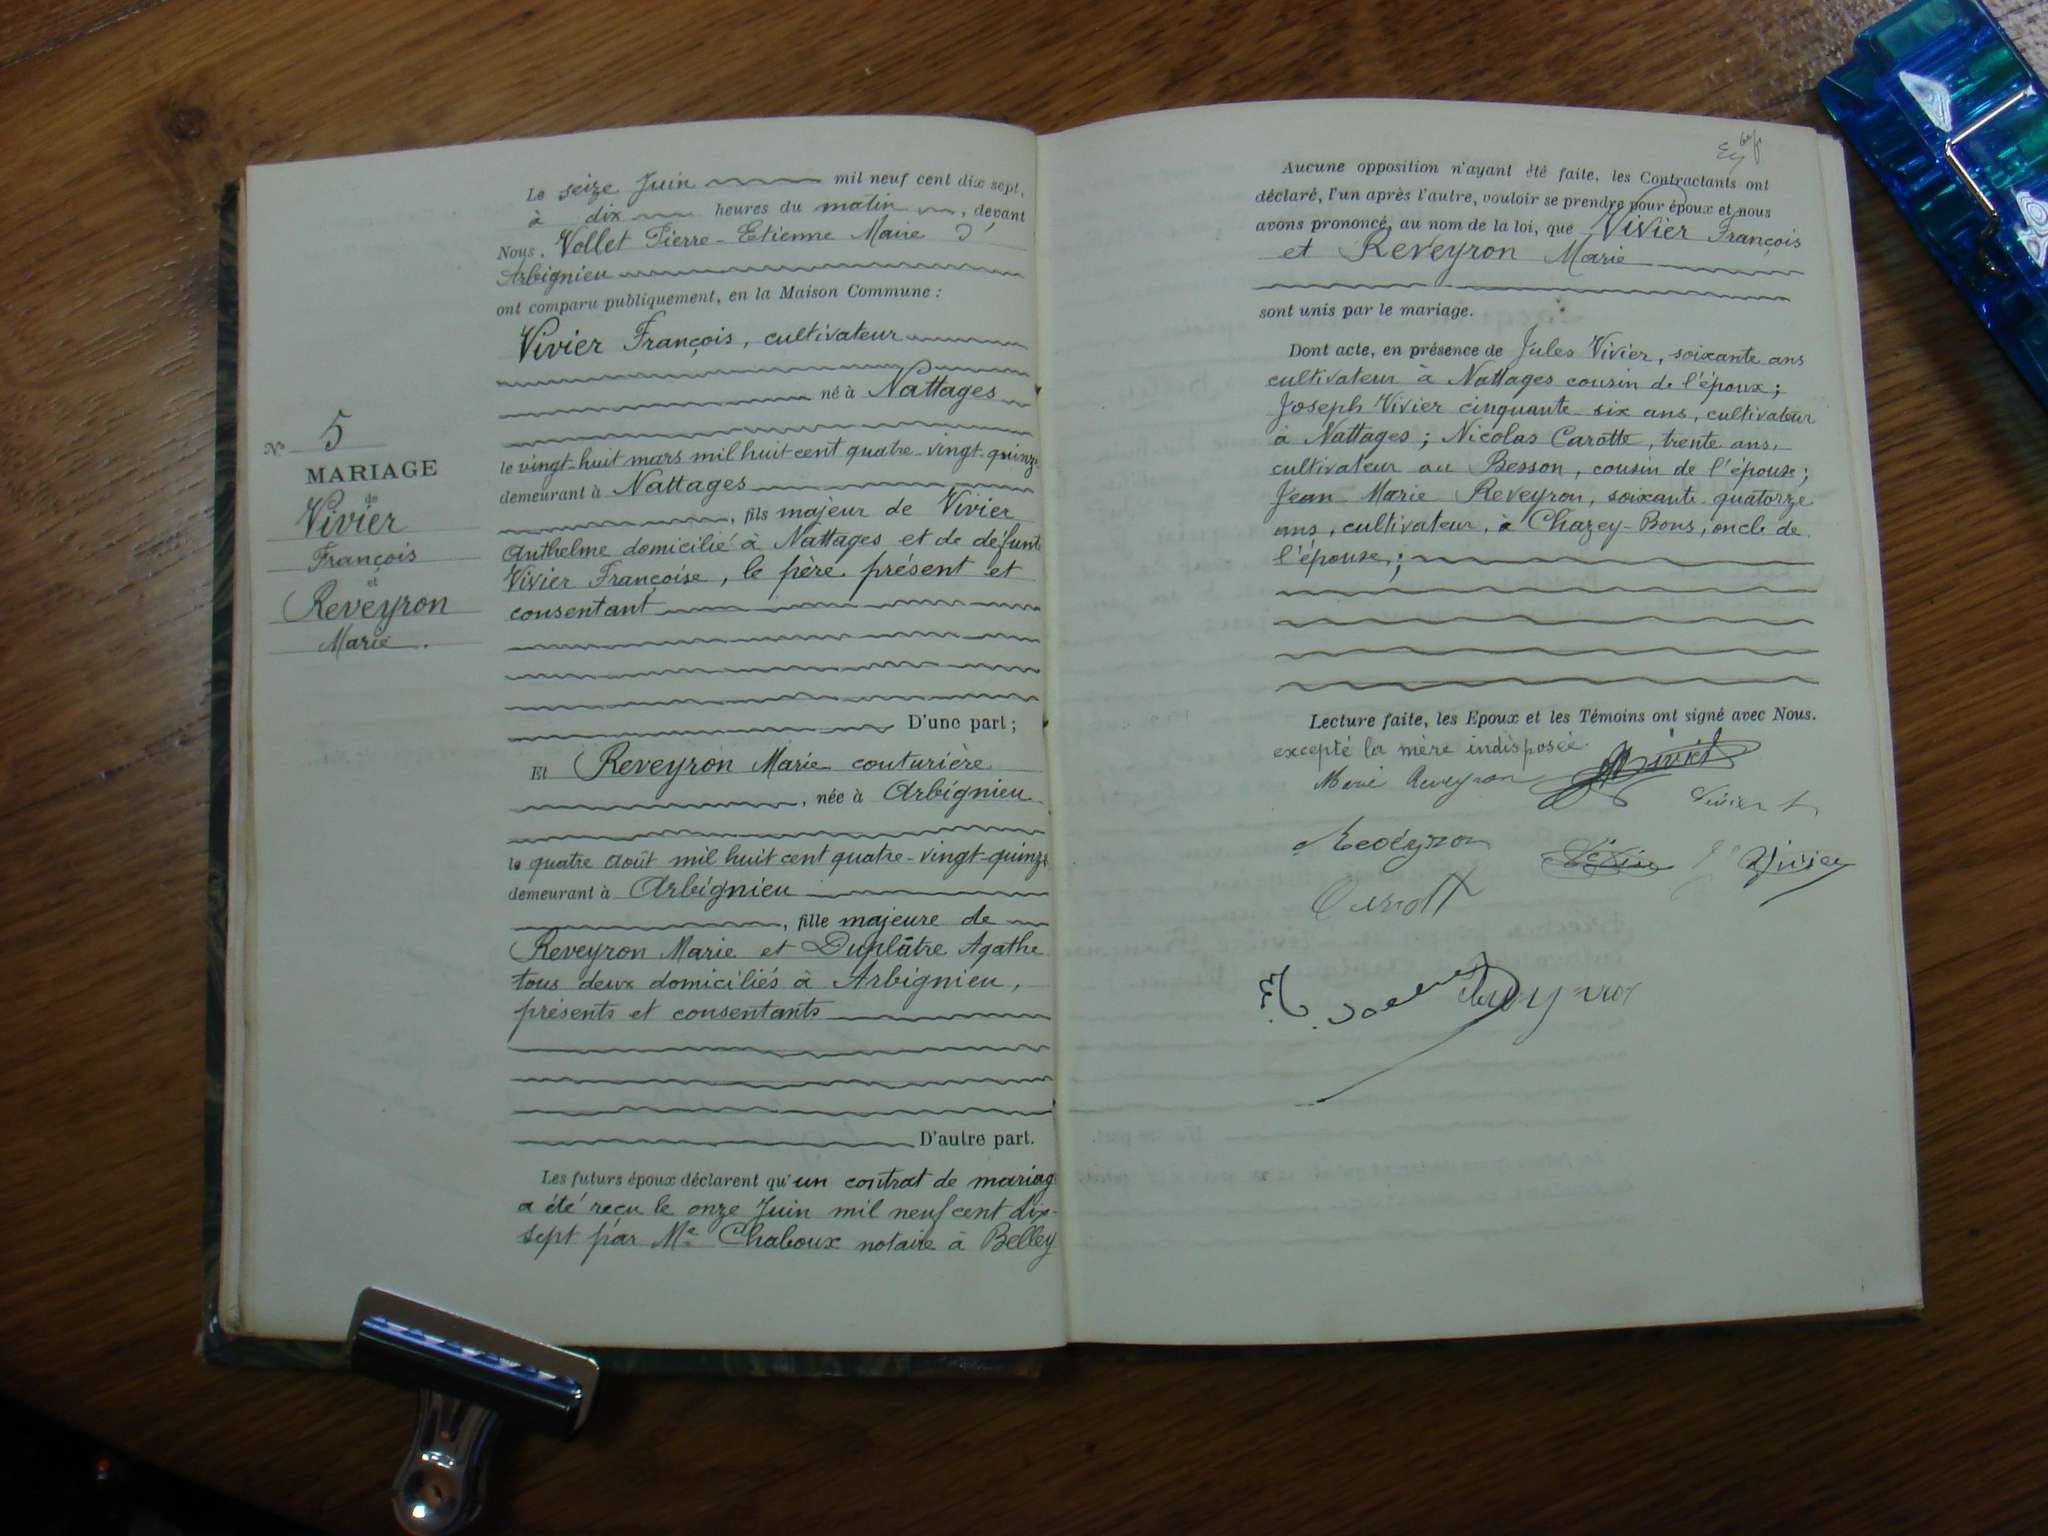 Le seize Juin mil neuf cent dix sept,
à dix heures du matin, devant
Nous, Vollet Pierre-Etienne Maire D'
Arbignieu
ont comparu publiquement, en la Maison Commune :
Vivier François, cultivateur
né à Nattages
le vingt-huit mars mil huit cent quatre-vingt-quinze
demeurant à Nattages
, fils majeur de Vivier
Anthelme domicilié à Nattages et de défunte
Vivier Françoise, le père présent et
consentant
D'une part ;
Et Reveyron Marie couturière
, née à Arbignieu
le quatre Août mil huit cent quatre-vingt-quinze
demeurant à Arbignieu
, fille majeure de
Reveyron Marie et Duplâtre Agathe
tous deux domiciliés à Arbignieu,
présents et consentants
D'autre part.
Les futurs époux déclarent qu'un contrat de mariage
a été reçu le onze Juin mil neuf cent dix-
sept par Me Chaboux notaire à Belley
N° 5
MARIAGE
de
Vivier
François
et
Reveyron
Marie.
Aucune opposition n'ayant été faite, les Contractants ont
déclaré, l'un après l'autre, vouloir se prendre pour époux et nous
avons prononcé, au nom de la loi, que Vivier François
et Reveyron Marie
sont unis par le mariage.
Dont acte, en présence de Jules Vivier, soixante ans
cultivateur à Nattages cousin de l'époux ;
Joseph Vivier cinquante six ans, cultivateur
à Nattages ; Nicolas Carotte, trente ans,
cultivateur au Besson, cousin de l'épouse ;
Jean Marie Reveyron, soixante quatorze
ans, cultivateur, à Chazey-Bons, oncle de
l'épouse ;
Lecture faite, les Epoux et les Témoins ont signé avec Nous.
excepté la mère indisposée.
Marie Reveyron Vivier
Vivier
Reveyron
Vivier
Carott
Reveyron